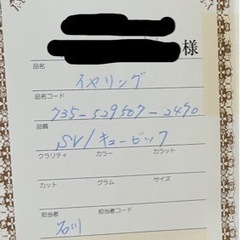 様
品名
イヤリング
品名コード
735-529507-2470
品質
SV/キュービック
クラリティ カラー カラット
カット グラム サイズ
担当者 担当者コード
石川